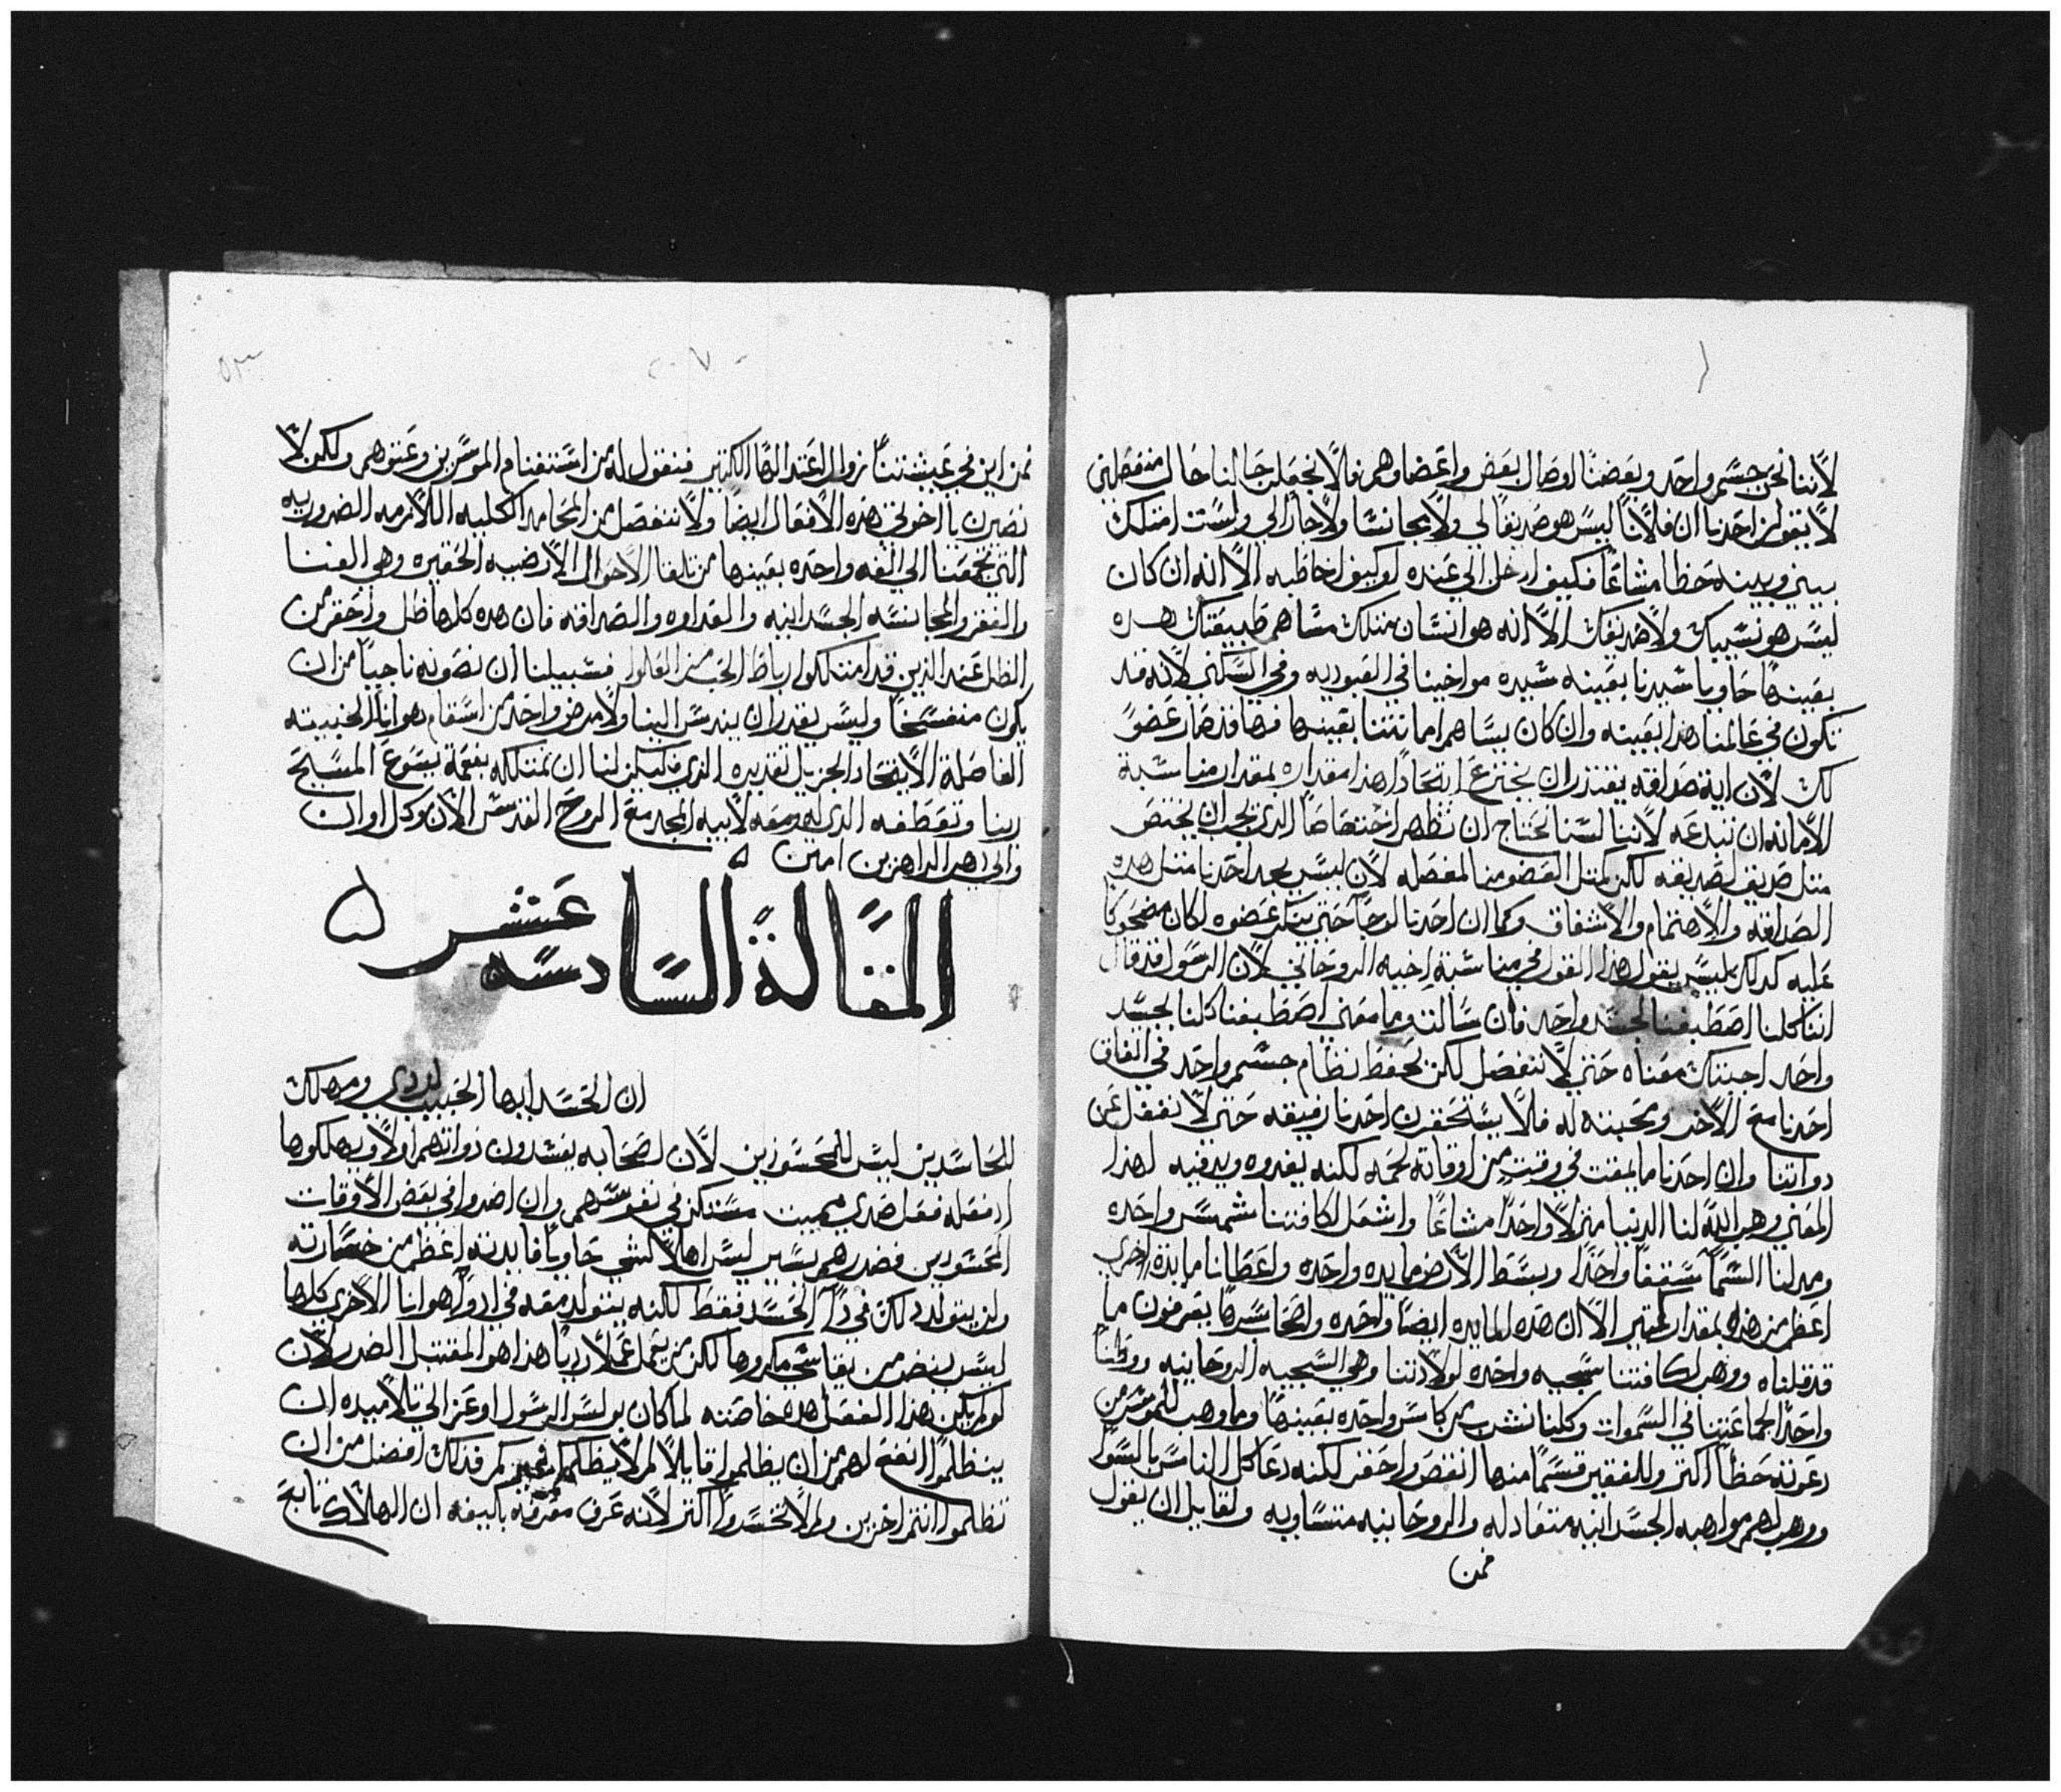 لاننا نحن جسم واحد وبعضنا اوصال بعض واعضاوهم فلا نجعلن حالنا حال منفصلين
لا يقولن احدنا ان فلانا ليس هو صديقا لي ولا مجانسا ولا جار لي ولست امتلك
بيني وبينه حظا مشاعا فكيف ادخل الي عنده او كيف اخاطبه الا انه ان كان
ليس هو نسيبك ولا صديقك الا انه هو انسان مثلك مساهم طبيعتك هده
بعينها حاويا سيدنا بعينه سيده مواخينا في العبوديه وفي السكني لانه قد
تكون في عالمنا هدا بعينه وان كان يساهم امانتنا بعينها فها قد صار عضوا
لك لان اية صداقه يقتدر ان يخترع اتحادا هذا مقداره بمقدار مناسبة
الامانه ان تبدعه لاننا لسنا نحتاج ان نظهر اختصاصا الدي يجب ان يختص
مثل صديق لصديقه لكن كمثل العضو من المفصله لان ليس يجد احدنا مثل هده
الصداقه والاهتمام والاشفاق وكما ان احدنا لوجا حتي ينكر عضوه لكان مضحوكا
عليه كدلك ليس يقول هدا القول في مناسبة اخيه الروحاني لان الرسول قد قال
اننا كلنا اصطبغنا لجسد واحد فان سالت وما معني اصطبغنا كلنا لجسد
واحد اجبتك معناه حتي لا ننفصل لكن نحفظ نظام جسم واحد في اتفاق
احدنا مع الاخر ومحبته له فلا يستحقرن احدنا رفيقه حتي لا نغفل عن
دواتنا وان احدنا ما يمقت في وقت من اوقاته لحمه لكنه يغدوه ويدفيه لهذا
المعني وهب الله لنا الدنيا منزلا واحدا مشاعا واشعل لكافتنا شمس واحده
ومد لنا السما سقفا واحدا وبسط الارض مايده واحده واعطانا مايدة اخري
اعظم من هده بمقدار كثير الا ان هده المايده ايضا واحده واصحاب سرها يعرفون ما
قد قلناه ووهب لكافتنا سجيه واحده لولادتنا وهي السجيه الروحانيه ووطنا
واحدا لجماعتنا في السموات وكلنا نشرب من كاس واحده بعينها وما وهب للموسر من
دعوته حظا اكثر وللفقير قسما منها انقص واحقر لكنه دعا كل الناس بالسوا
ووهب لهم مواهبه الجسدانيه متعادله والروحانيه متساويه ولقايل ان يقول
فمن
فمن اين في عيشتنا زوال اعتدالها الكثير فنقول له من استغنام الموسرين وعتوهم ولكن لا
نصيرن يا اخوتي هده الافعال ايضا ولا ننفصل من المحامد الكليه اللازمه الضروريه
التي تجمعنا الي الفه واحده بعينها من تلقا الاحوال الارضيه الحقيره وهي الغنا
والفقر والمجانسه الجسدانيه والعداوه والصداقه فان هده كلها ظل واحقر من
الظل عند الدين قد امتلكوا رباط الحب من العلو فسبيلنا ان نصونه ناجيا من ان
يكون منفسخا وليس يقدر ان يندس الينا ولا مرض واحد من اسقام هوانا الخبيثه
الفاصلة الاتحاد الجزيل تقديره الدي فليكن لنا ان نمتلكه بنعمة يسوع المسيح
ربنا وتعطفه الدي له ومعه لابيه المجد مع الروح القدس الان وكل اوان
والي دهر الداهرين امين ه
المقالة السادسه عشر ه
ان الحسد ايها الحبيب ردي ومهلك
للحاسدين ليس للمحسودين لان اصحابه يفسدون دواتهم اولا ويهلكوها
اد فعله فعل صدي مميت مستكن في نفوسهم وان اضروا في بعض الاوقات
المحسودين فضررهم يسير ليس اهلا لشي حاويا فايدته اعظم من خسارته
ولن يتولد دلك في دآ الحسد فقط لكنه يتولد معه في ادوا هوانا الاخري كلها
ليس يضر من يقاسي مكروها لكن من يعمل عملا رديا هذا هو المقتبل الضرر لان
لو لم يكن هدا الفعل هده خاصته لما كان بولس الرسول اوعز الي تلاميده ان
ينظلموا انفع لهم من ان يظلموا قايلا لم لا ينظلم منكم فدلك افضل من ان
تظلموا انتم اخرين ولم لا تحسدوا اكثر لانه عرف معرفه بالغه ان الهلاك تابع